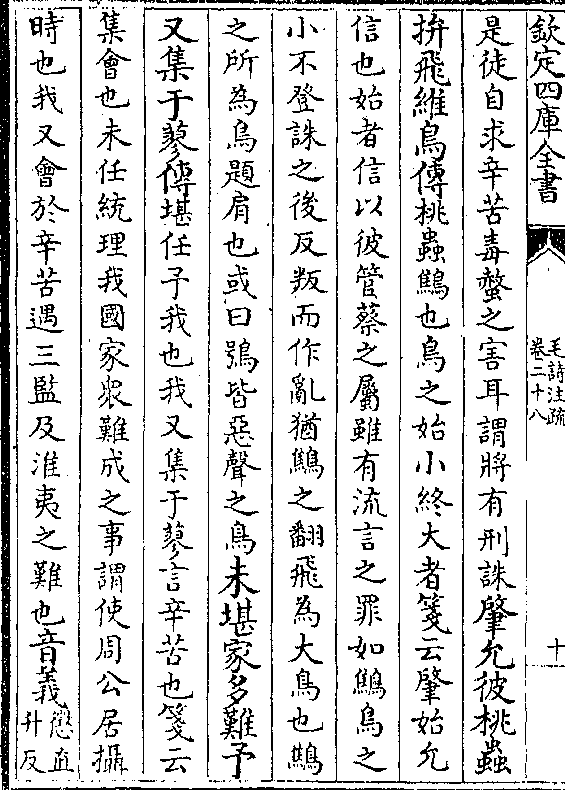 欽定四庫全書
毛詩注疏
卷二十八
十
是徒自求辛苦毒螫之害耳謂將有刑誅肇允彼桃蟲
拚飛維鳥傳桃蟲鷦也鳥之始小終大者箋云肇始允
信也始者信以彼管蔡之屬雖有流言之罪如鷦鳥之
小不登誅之後反叛而作亂猶鷦之翻飛為大鳥也鷦
之所為鳥題肩也或曰鴞皆惡聲之鳥未堪家多難予
又集于蓼傳堪任予我也我又集于蓼言辛苦也箋云
集會也未任統理我國家衆難成之事謂使周公居攝
時也我又會於辛苦遇三監及淮夷之難也音義懲直
升反